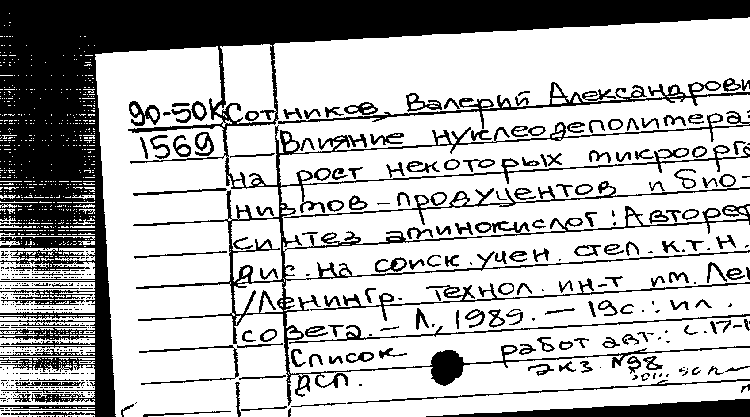 90-50К Сотников, Валерий Александрови
1569 Влияние нуклеодеполимераз
на рост некоторых микроорга
низмов-продуцентов и био-
синтез аминокислот: Автореф
дис. на соиск. учен. степ. к.т.н.
/Ленингр. технол. ин-т им. Лен
совета. - Л., 1989. - 19с.: ил.
Список работ авт.: с.17-1
ДСП. экз. №98